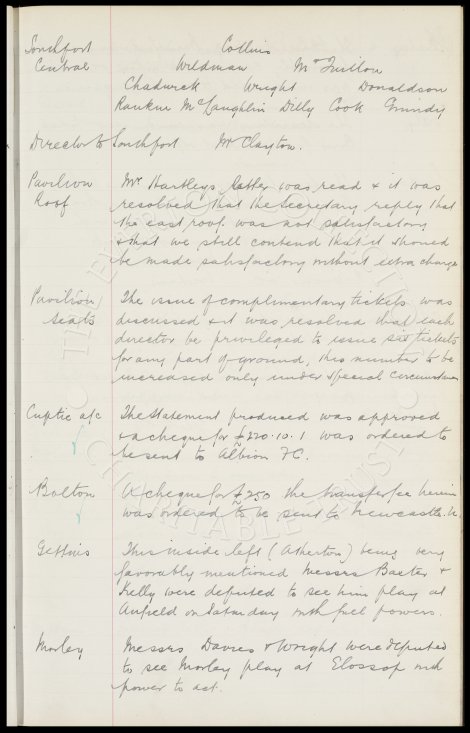 Southport Collins
Central Wildman McFuillon
Chadwick Wright Donaldson
Rankin McLaughlin Dilly Cook Grundy
Director to Southport Mr Clayton.
Pavilion Mr Hartleys letter was read & it was
Roof resolved that the Secretary reply that
the east roof was not satisfactory
& that we still contend that it should
be made satisfactory without extra charge
Pavilion The issue of complimentary tickets was
seats discussed & it was resolved that each
director be privileged to issue six tickets
for any part of ground, this number to be
increased only under special circumstances
Cuptie a/c The Statement produced was approved
& a cheque for £220.10.1 was ordered to
be sent to Albion FC.
Bolton A cheque for £250 the transfer fee herein
was ordered to be sent to Newcastle. U.
This inside left (Atherton) being very
favorably mentioned Messrs Baxter &
Kelly were deputed to see him play at
Anfield on Saturday with full powers.
Morley Messrs Davies & Wright were deputed
to see Morley play at Glossop with
power to act.
THE EVERTON
CHARITABLE TRUST